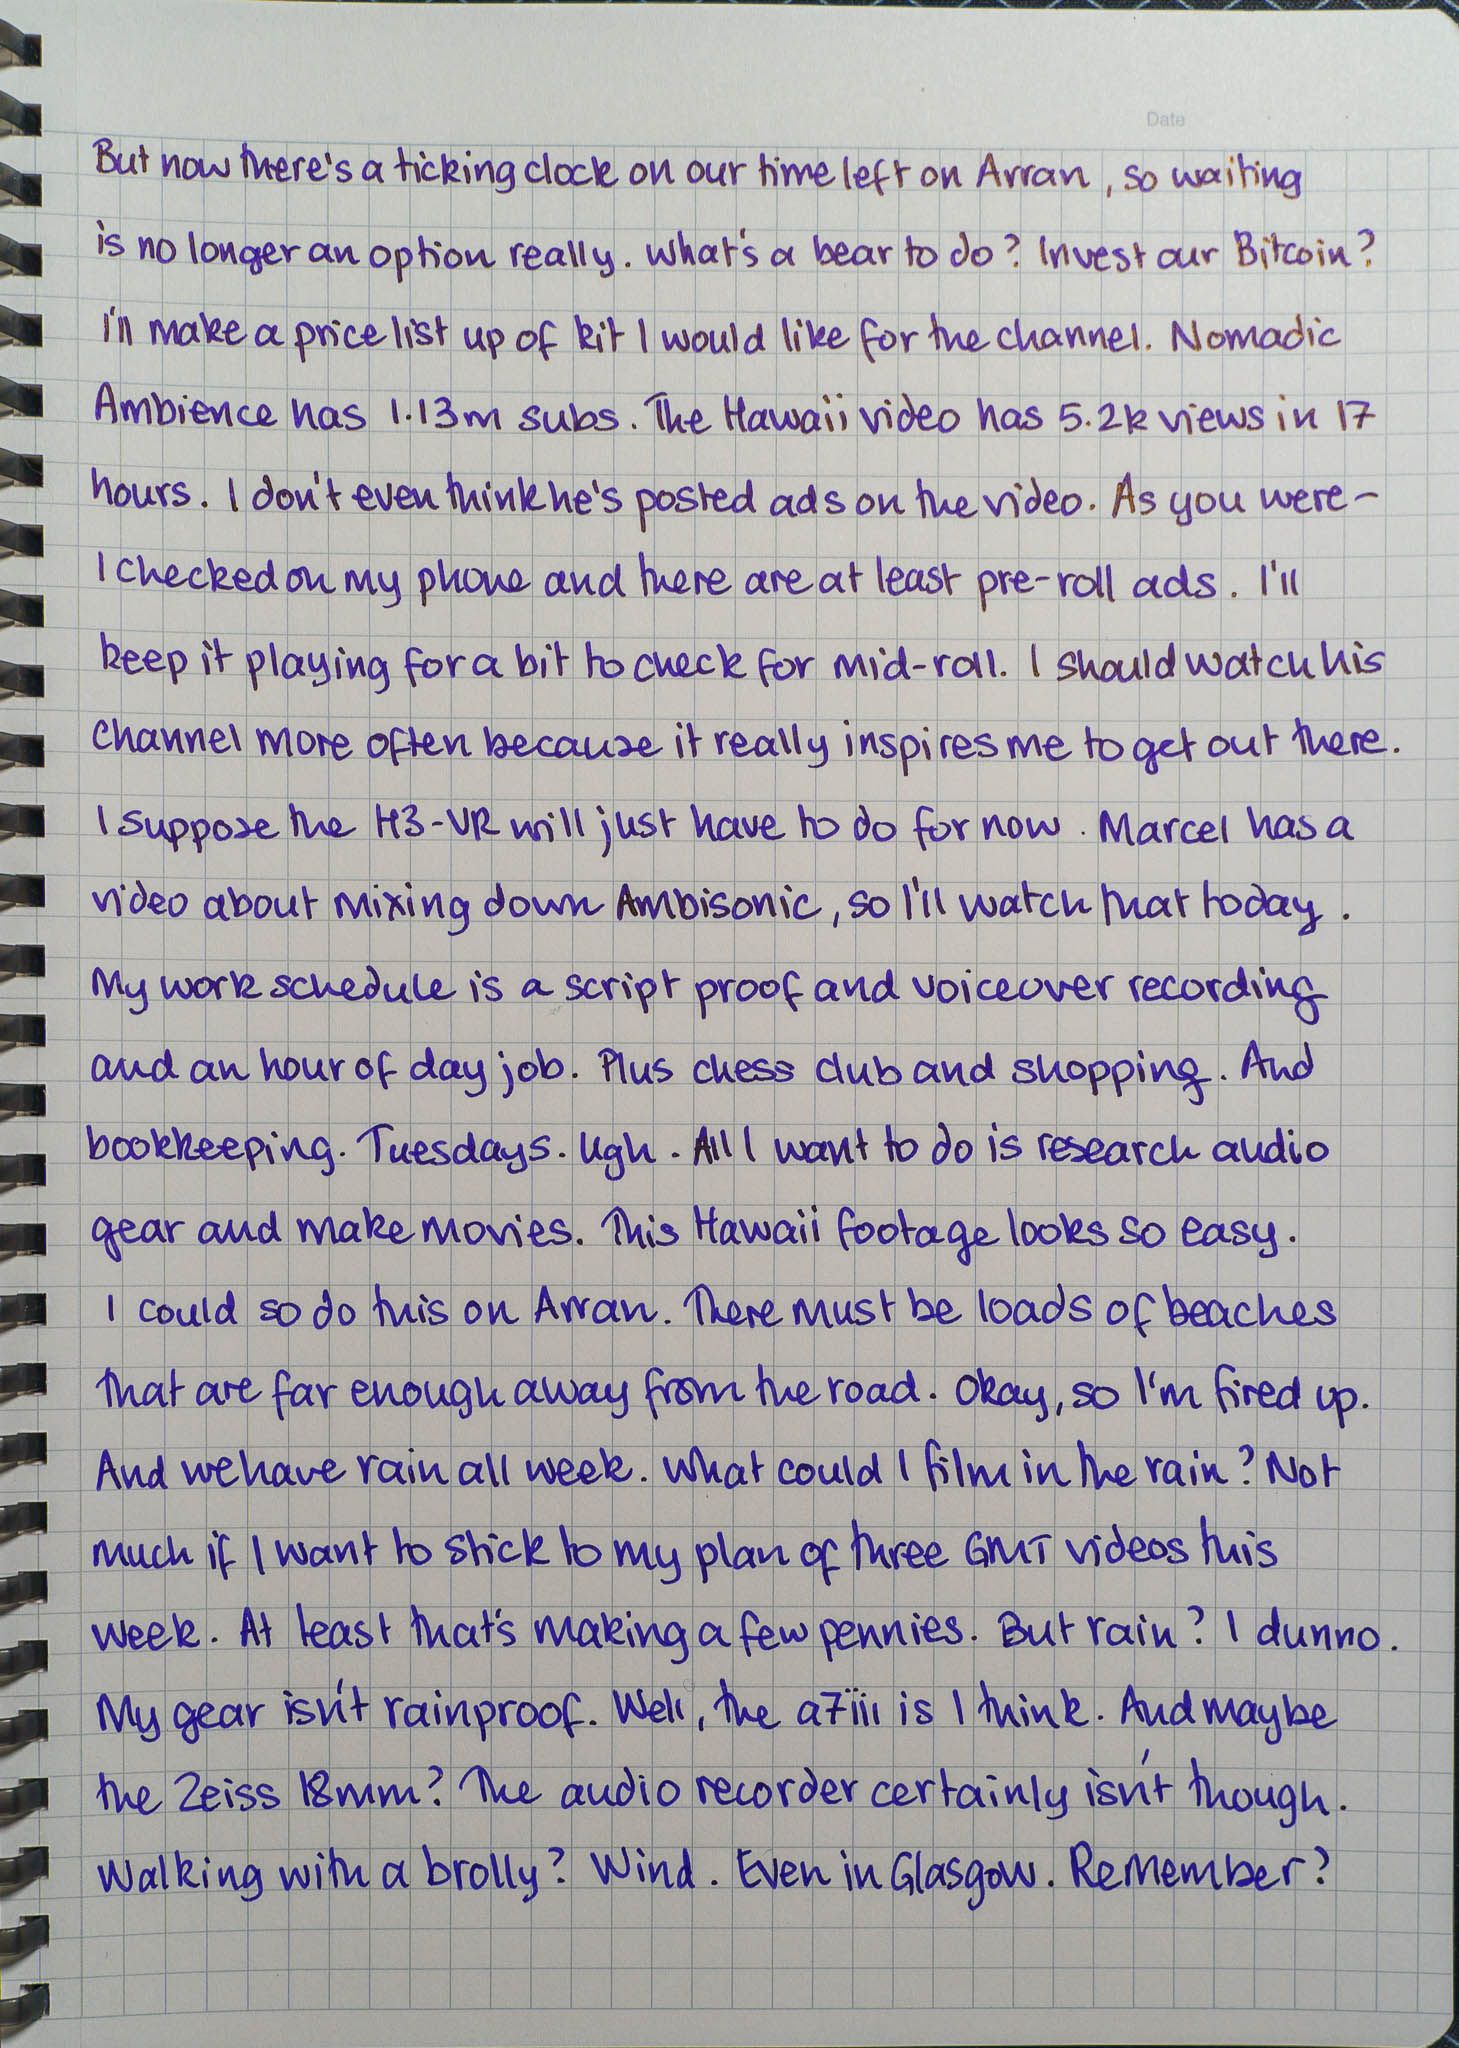 Date
But now there's a ticking clock on our time left on Arran, so waiting
is no longer an option really. What's a bear to do? Invest our Bitcoin?
I'll make a price list up of kit I would like for the channel. Nomadic
Ambience has 1.13m subs. The Hawaii video has 5.2k views in 17
hours. I don't even think he's posted ads on the video. As you were –
I checked on my phone and there are at least pre-roll ads. I'll
keep it playing for a bit to check for mid-roll. I should watch his
channel more often because it really inspires me to get out there.
I suppose the H3-VR will just have to do for now. Marcel has a
video about mixing down Ambisonic, so I'll watch that today.
My work schedule is a script proof and voiceover recording
and an hour of day job. Plus chess club and shopping. And
bookkeeping. Tuesdays. Ugh. All I want to do is research audio
gear and make movies. This Hawaii footage looks so easy.
I could so do this on Arran. There must be loads of beaches
that are far enough away from the road. Okay, so I'm fired up.
And we have rain all week. What could I film in the rain? Not
much if I want to stick to my plan of three GMT videos this
week. At least that's making a few pennies. But rain? I dunno.
My gear isn't rainproof. Well, the a7iii is I think. And maybe
the Zeiss 18mm? The audio recorder certainly isn't though.
Walking with a brolly? Wind. Even in Glasgow. Remember?